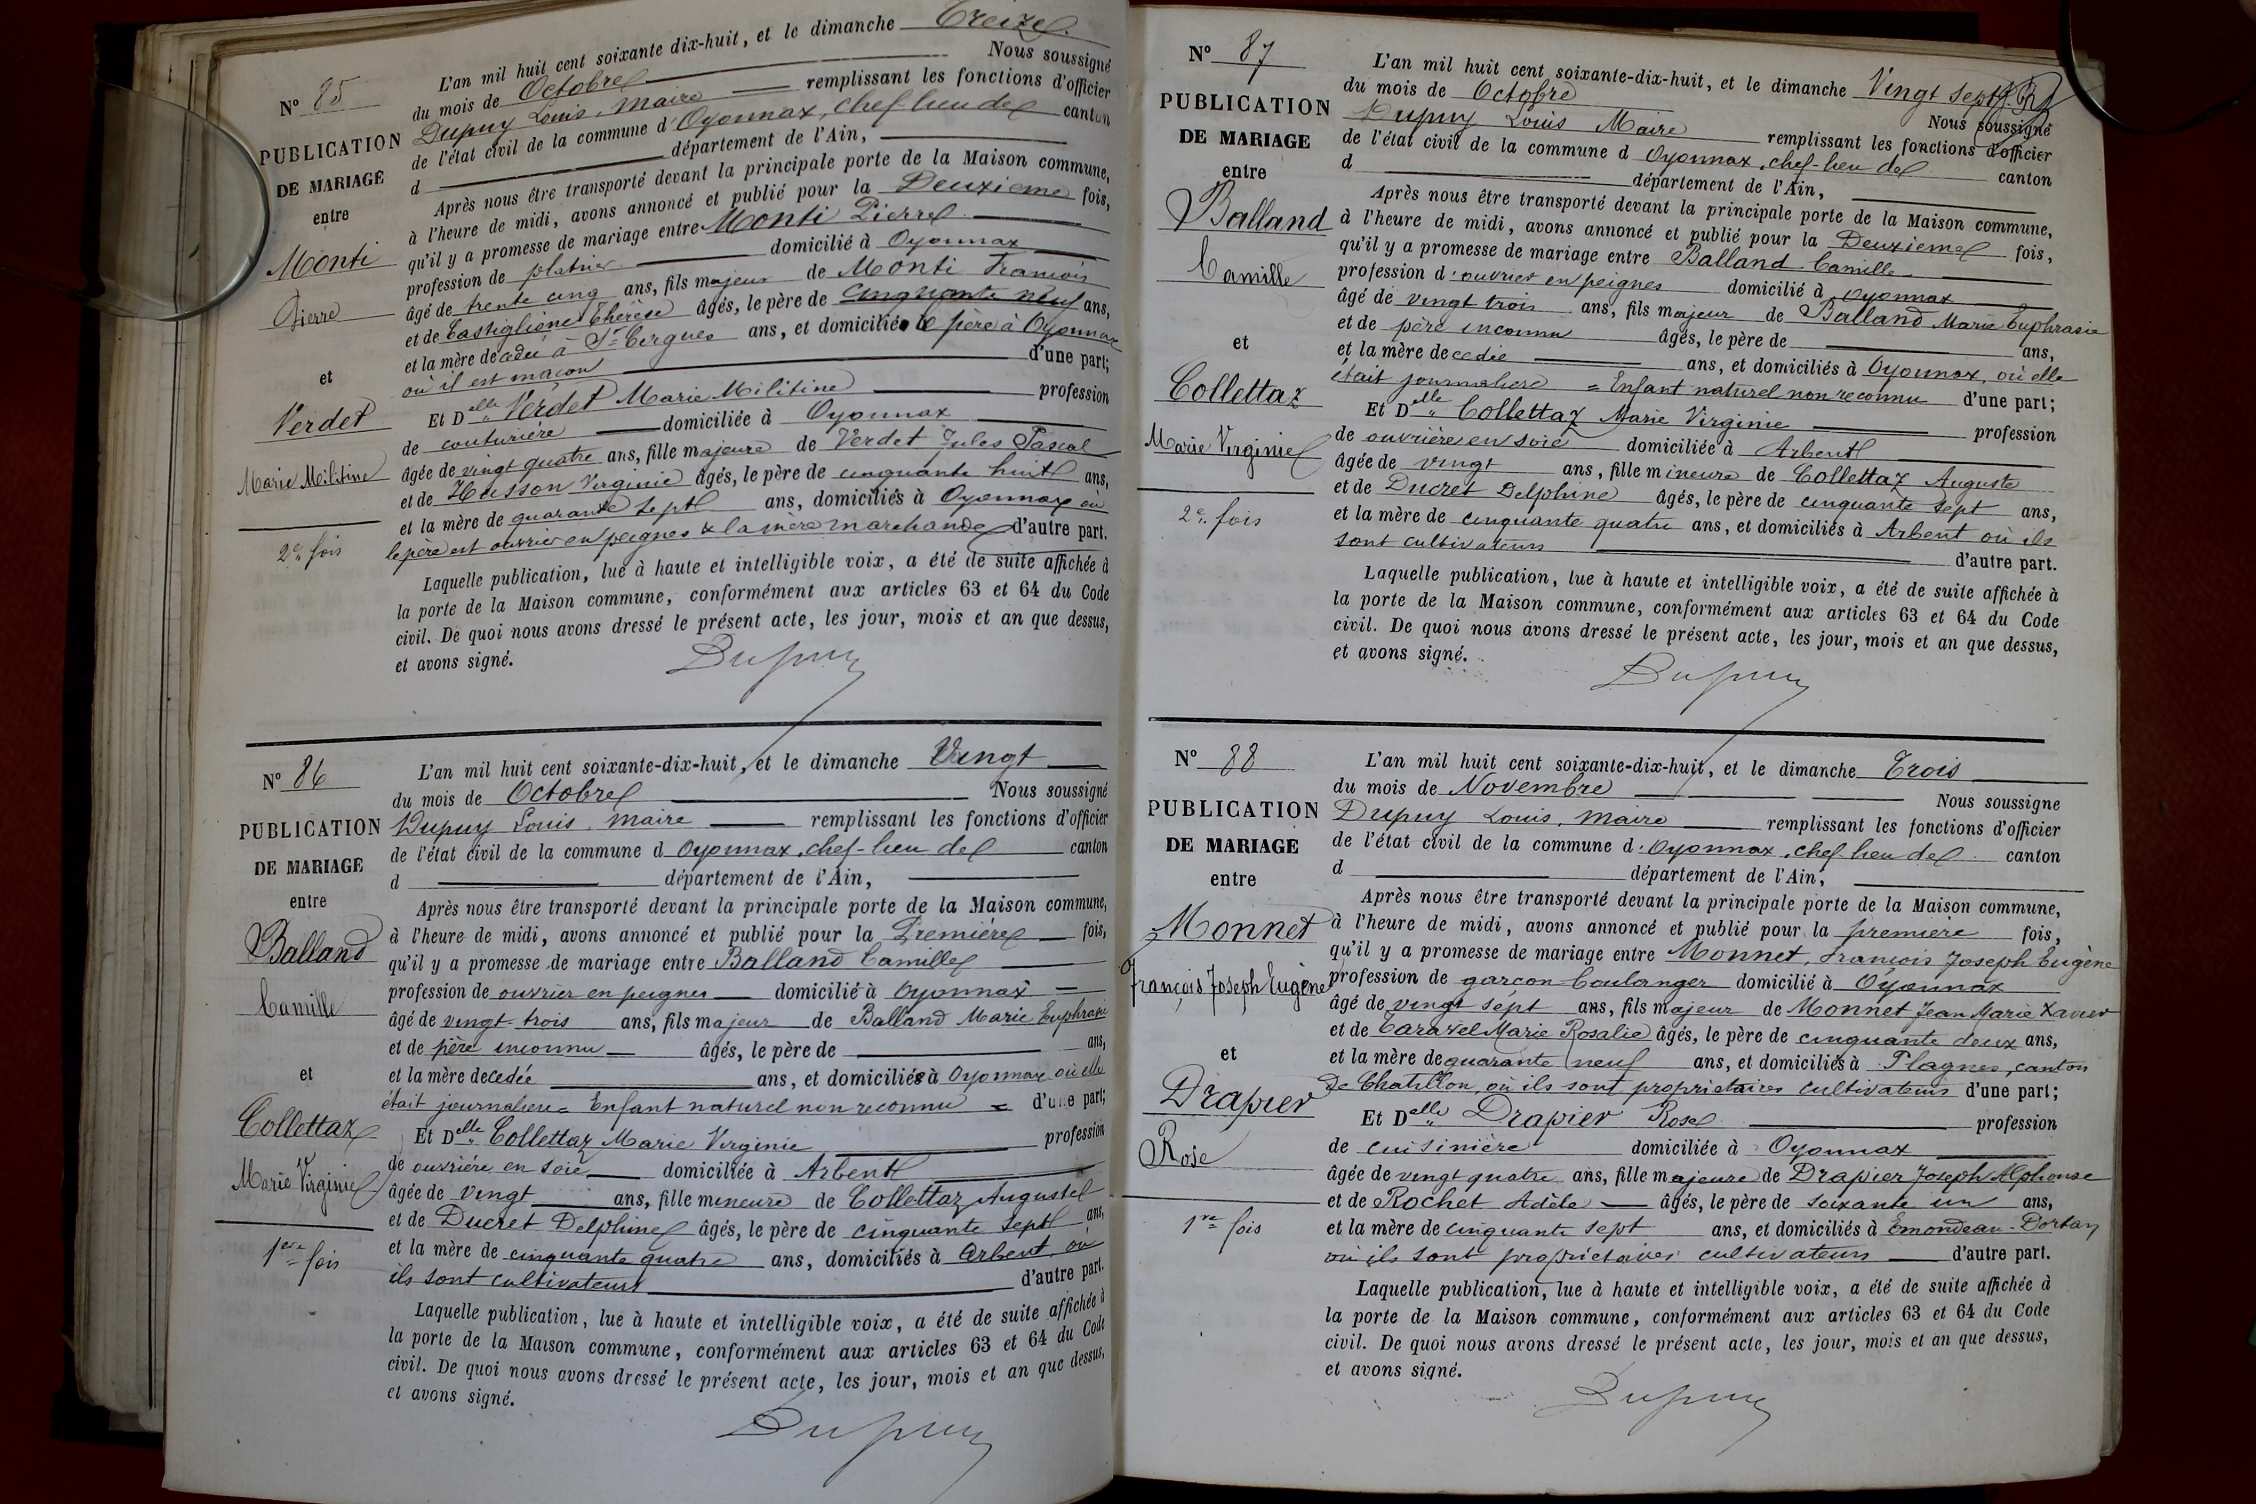 N° 85
PUBLICATION
DE MARIAGE
entre
Monti
Pierre
et
Verdet
Marie Militine
2e fois
L'an mil huit cent soixante dix-huit, et le dimanche Treize
du mois de Octobre Nous soussigné
Dupuy Louis, Maire remplissant les fonctions d'officier
de l'état civil de la commune d'Oyonnax, chef-lieu de canton
d département de l'Ain,
Après nous être transporté devant la principale porte de la Maison commune,
à l'heure de midi, avons annoncé et publié pour la Deuxieme fois,
qu'il y a promesse de mariage entre Monti Pierre
profession de platrier domicilié à Oyonnax
âgé de trente cinq ans, fils majeur de Monti François
et de Castiglione Thérèse âgés, le père de cinquante neuf ans,
et la mère décédée à St Cergues ans, et domicilié le père à Oyonnax
où il est maçon d'une part;
Et Delle Verdet Marie Militine profession
de couturière domiciliée à Oyonnax
âgée de vingt quatre ans, fille majeure de Verdet Jules Pascal
et de Husson Virginie âgés, le père de cinquante huit ans,
et la mère de quarante sept ans, domiciliés à Oyonnax où
le père est ouvrier en peignes & la mère marchande d'autre part.
Laquelle publication, lue à haute et intelligible voix, a été de suite affichée à
la porte de la Maison commune, conformément aux articles 63 et 64 du Code
civil. De quoi nous avons dressé le présent acte, les jour, mois et an que dessus,
et avons signé.
Dupuy
N° 86
PUBLICATION
DE MARIAGE
entre
Balland
Camille
et
Collettaz
Marie Virginie
1ere fois
L'an mil huit cent soixante-dix-huit, et le dimanche Vingt
du mois de Octobre Nous soussigné
Dupuy Louis, Maire remplissant les fonctions d'officier
de l'état civil de la commune d Oyonnax, chef-lieu de canton
d département de l'Ain,
Après nous être transporté devant la principale porte de la Maison commune,
à l'heure de midi, avons annoncé et publié pour la Première fois,
qu'il y a promesse de mariage entre Balland Camille
profession de ouvrier en peignes domicilié à Oyonnax
âgé de vingt-trois ans, fils majeur de Balland Marie Euphrasie
et de père inconnu âgés, le père de ans,
et la mère decedée ans, et domiciliés à Oyonnax où elle
était journalière = Enfant naturel non reconnu = d'une part;
Et Delle Collettaz Marie Virginie profession
de ouvrière en soie domiciliée à Arbent
âgée de vingt ans, fille mineure de Collettaz Auguste
et de Ducret Delphine âgés, le père de cinquante sept ans,
et la mère de cinquante quatre ans, domiciliés à Arbent, où
ils sont cultivateurs d'autre part.
Laquelle publication, lue à haute et intelligible voix, a été de suite affichée à
la porte de la Maison commune, conformément aux articles 63 et 64 du Code
civil. De quoi nous avons dressé le présent acte, les jour, mois et an que dessus,
et avons signé.
Dupuy
N° 87
PUBLICATION
DE MARIAGE
entre
Balland
Camille
et
Collettaz
Marie Virginie
2e fois
L'an mil huit cent soixante-dix-huit, et le dimanche Vingt sept
du mois de Octobre Nous soussigné
Dupuy Louis Maire remplissant les fonctions d'officier
de l'état civil de la commune d Oyonnax, chef-lieu de canton
d département de l'Ain,
Après nous être transporté devant la principale porte de la Maison commune,
à l'heure de midi, avons annoncé et publié pour la Deuxieme fois,
qu'il y a promesse de mariage entre Balland Camille
profession d'ouvrier en peignes domicilié à Oyonnax
âgé de vingt trois ans, fils majeur de Balland Marie Euphrasie
et de père inconnu âgés, le père de ans,
et la mère decedée ans, et domiciliés à Oyonnax, où elle
était journalière = Enfant naturel non reconnu d'une part;
Et Delle Collettaz Marie Virginie profession
de ouvrière en soie domiciliée à Arbent
âgée de vingt ans, fille mineure de Collettaz Auguste
et de Ducret Delphine âgés, le père de cinquante sept ans,
et la mère de cinquante quatre ans, et domiciliés à Arbent où ils
sont cultivateurs d'autre part.
Laquelle publication, lue à haute et intelligible voix, a été de suite affichée à
la porte de la Maison commune, conformément aux articles 63 et 64 du Code
civil. De quoi nous avons dressé le présent acte, les jour, mois et an que dessus,
et avons signé.
Dupuy
N° 88
PUBLICATION
DE MARIAGE
entre
Monnet
François Joseph Eugène
et
Drapier
Rose
1re fois
L'an mil huit cent soixante-dix-huit, et le dimanche Trois
du mois de Novembre Nous soussigne
Dupuy Louis, Maire remplissant les fonctions d'officier
de l'état civil de la commune d'Oyonnax, chef-lieu de canton
d département de l'Ain,
Après nous être transporté devant la principale porte de la Maison commune,
à l'heure de midi, avons annoncé et publié pour la première fois,
qu'il y a promesse de mariage entre Monnet, François Joseph Eugène
profession de garçon boulanger domicilié à Oyonnax
âgé de vingt sept ans, fils majeur de Monnet Jean Marie Xavier
et de Caravel Marie Rosalie âgés, le père de cinquante deux ans,
et la mère de quarante neuf ans, et domiciliés à Plagnes, canton
de Chatillon, où ils sont proprietaires cultivateurs d'une part;
Et Delle Drapier Rose profession
de cuisinière domiciliée à Oyonnax
âgée de vingt quatre ans, fille majeure de Drapier Joseph Alphonse
et de Rochet Adèle âgés, le père de soixante un ans,
et la mère de cinquante sept ans, et domiciliés à Emondeau-Dortan
où ils sont propriétaires cultivateurs d'autre part.
Laquelle publication, lue à haute et intelligible voix, a été de suite affichée à
la porte de la Maison commune, conformément aux articles 63 et 64 du Code
civil. De quoi nous avons dressé le présent acte, les jour, mois et an que dessus,
et avons signé.
Dupuy